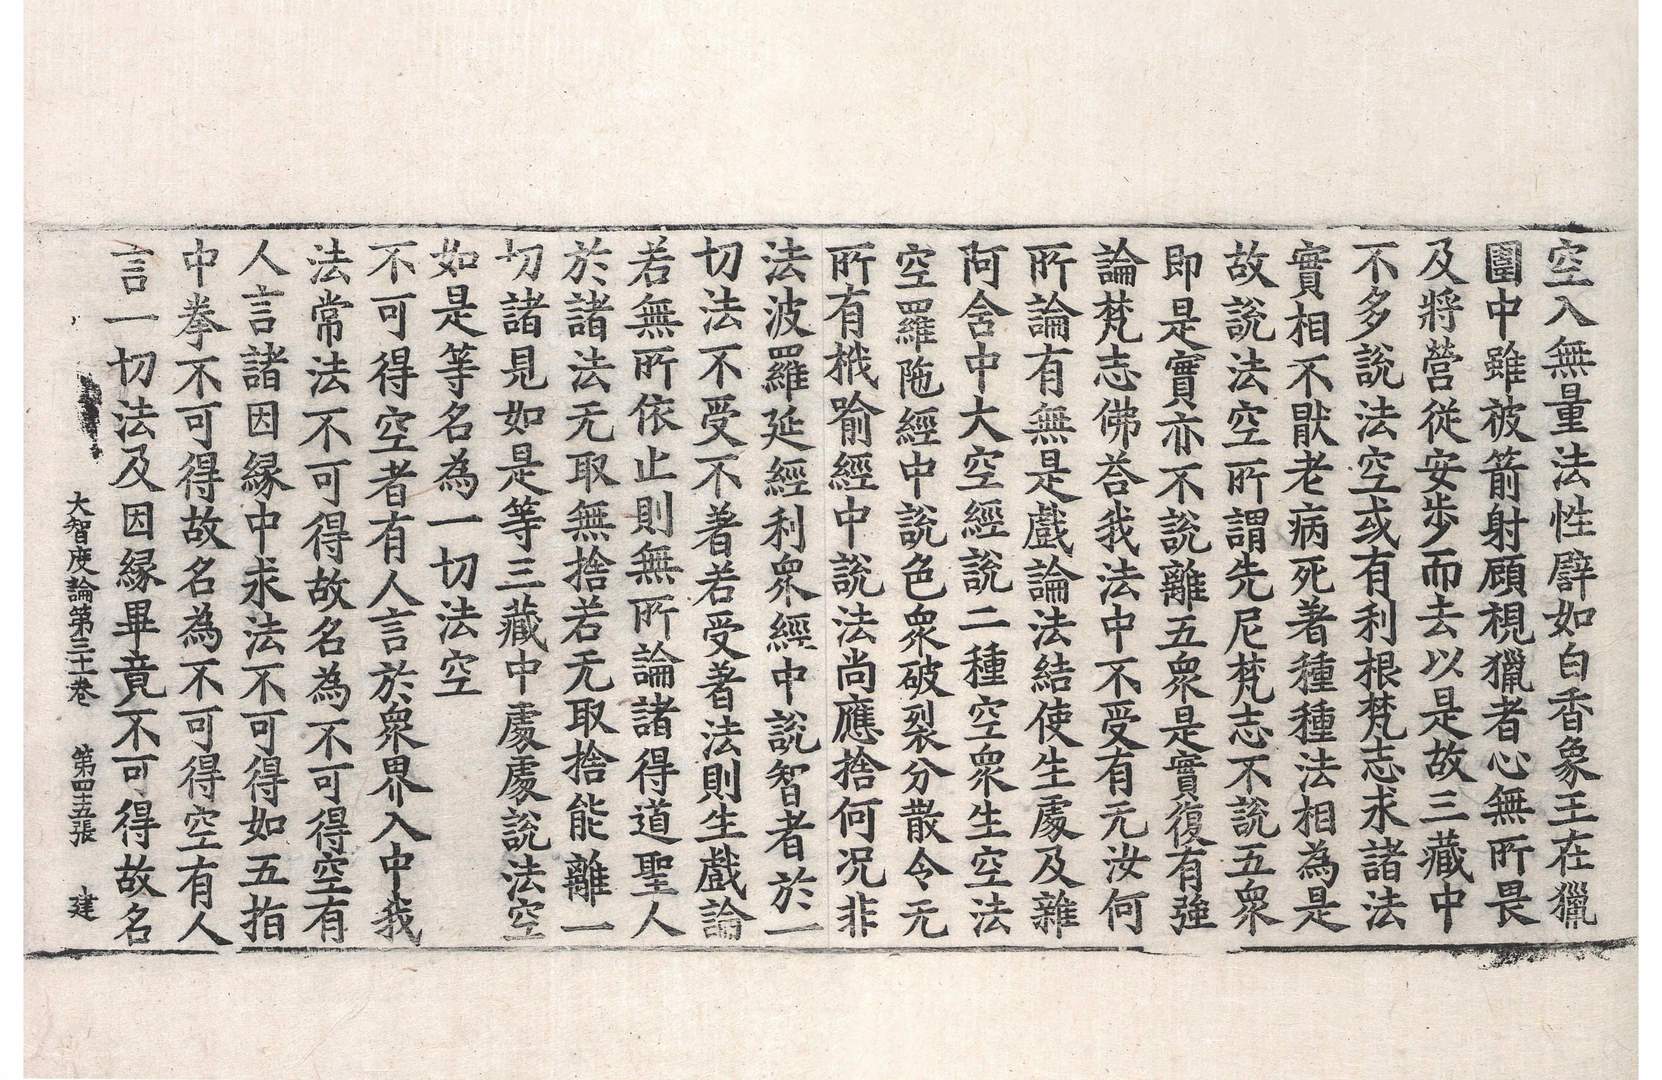 空入無量法性譬如白香象王在獵
圍中雖被箭射顧視獵者心無所畏
及將營從安步而去以是故三藏中
不多說法空或有利根梵志求諸法
實相不猒老病死著種種法相為是
故說法空所謂先尼梵志不說五衆
即是實亦不說離五衆是實復有強
論梵志佛荅我法中不受有无汝何
所論有無是戲論法結使生處及雜
阿含中大空經說二種空衆生空法
空羅陁經中說色衆破裂分散令无
所有栰喻經中說法尚應捨何况非
法波羅延經利衆經中說智者於一
切法不受不著若受著法則生戲論
若無所依止則無所論諸得道聖人
於諸法无取無捨若无取捨能離一
切諸見如是等三藏中處處說法空
如是等名為一切法空
不可得空者有人言於衆界入中我
法常法不可得故名為不可得空有
人言諸因緣中求法不可得如五指
中拳不可得故名為不可得空有人
言一切法及因緣畢竟不可得故名
大智度論第三十一卷 第四十五張 建